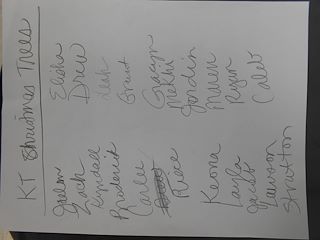 KT Christmas Trees
Jaelem
Zach
Kyndall
Broderick
Carlee
Riese
Keona
Jayla
Jacob
Lawson
Stratton
Elisha
Drew
Leah
Grant
Gracyn
Melhi
Jordin
Maren
Ryan
Caleb